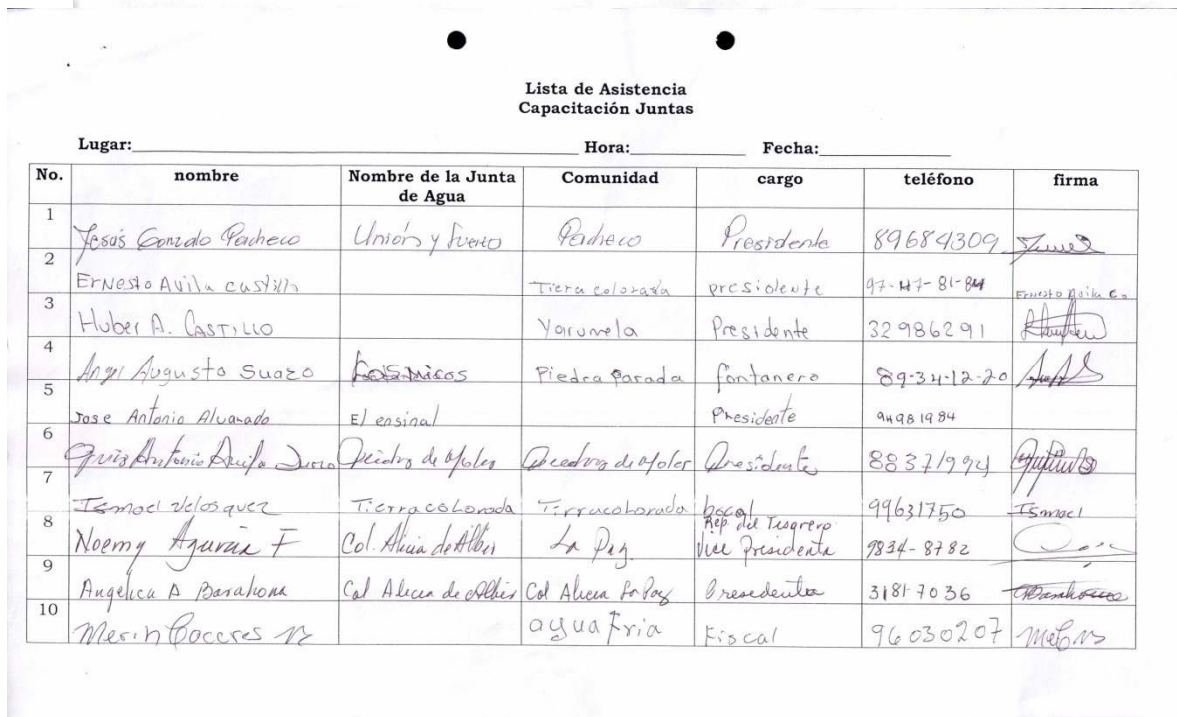 Lista de Asistencia
Capacitación Juntas
Lugar: Hora: Fecha:
No. nombre Nombre de la Junta de Agua Comunidad cargo teléfono firma
1 Jesús Gonzalo Pacheco Unión y Fuerto Pacheco Presidente 89684309
2 Ernesto Avila Castillo Tierra colorada presidente 97-47-81-84 Ernesto Avila C
3 Huber A. CASTILLO Yarumela Presidente 32986291
4 Angel Augusto Suazo Los Micos Piedra Parada fontanero 89-34-12-20
5 Jose Antonio Alvarado El ensinal Presidente 94981984
6 Antonio Avila de de Presidente 88371994
7 Ismael Velosquez Tierra coLorada Tirracolorada bocal 99631750 Ismael
8 Noemy F Col. Alicia de La Paz Rep. del Tesorero Vice Presidenta 9834-8782
9 Angelica A Barahona Col Alicia de Col Alicia La Paz Presedenta 3181-7036 Barahona
10 Merin Caceres agua Fria Fiscal 96030207